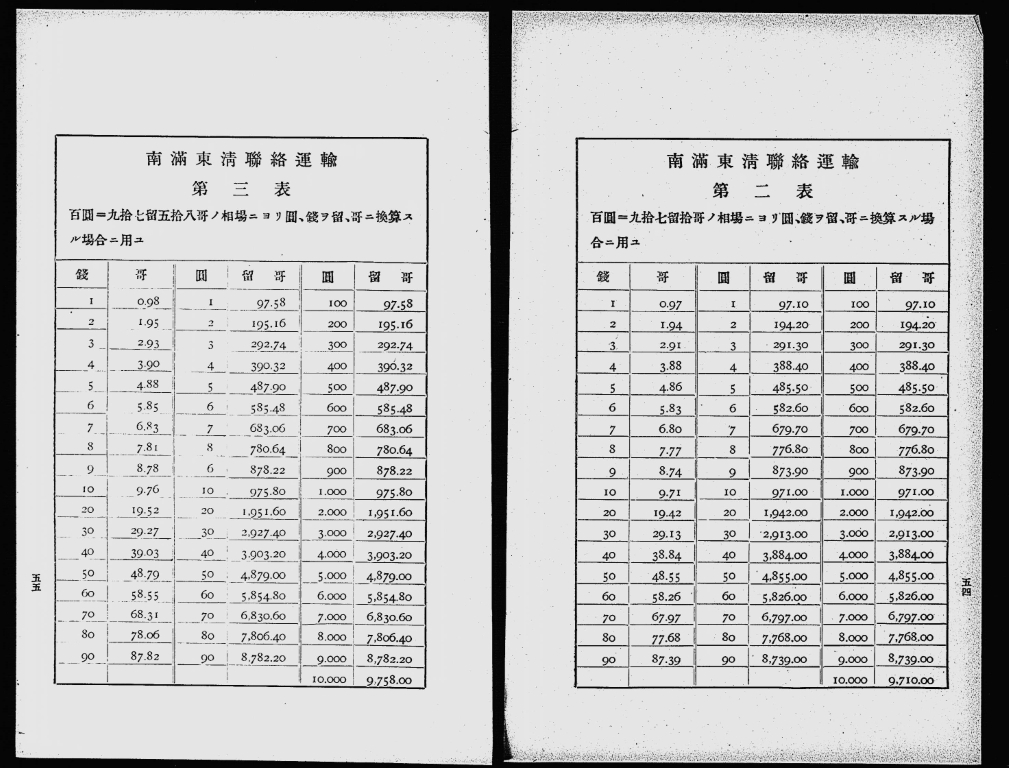 南滿東淸聯絡運輸
第二表
百圓＝九拾七留拾哥ノ相場ニヨリ圓、錢ヲ留、哥ニ換算スル場
合ニ用ユ
錢 哥 圓 留 哥 圓 留 哥
1 0.97 1 97.10 100 97.10
2 1.94 2 194.20 200 194.20
3 2.91 3 291.30 300 291.30
4 3.88 4 388.40 400 388.40
5 4.86 5 485.50 500 485.50
6 5.83 6 582.60 600 582.60
7 6.80 7 679.70 700 679.70
8 7.77 8 776.80 800 776.80
9 8.74 9 873.90 900 873.90
10 9.71 10 971.00 1.000 971.00
20 19.42 20 1,942.00 2.000 1,942.00
30 29.13 30 2,913.00 3.000 2,913.00
40 38.84 40 3,884.00 4.000 3,884.00
50 48.55 50 4,855.00 5.000 4,855.00
60 58.26 60 5,826.00 6.000 5,826.00
70 67.97 70 6,797.00 7.000 6,797.00
80 77.68 80 7,768.00 8.000 7,768.00
90 87.39 90 8,739.00 9.000 8,739.00
10.000 9,710.00
五四
南滿東淸聯絡運輸
第三表
百圓＝九拾七留五拾八哥ノ相場ニヨリ圓、錢ヲ留、哥ニ換算ス
ル場合ニ用ユ
錢 哥 圓 留 哥 圓 留 哥
1 0.98 1 97.58 100 97.58
2 1.95 2 195.16 200 195.16
3 2.93 3 292.74 300 292.74
4 3.90 4 390.32 400 390.32
5 4.88 5 487.90 500 487.90
6 5.85 6 585.48 600 585.48
7 6.83 7 683.06 700 683.06
8 7.81 8 780.64 800 780.64
9 8.78 6 878.22 900 878.22
10 9.76 10 975.80 1.000 975.80
20 19.52 20 1,951.60 2.000 1,951.60
30 29.27 30 2,927.40 3.000 2,927.40
40 39.03 40 3,903.20 4.000 3,903.20
50 48.79 50 4,879.00 5.000 4,879.00
60 58.55 60 5,854.80 6.000 5,854.80
70 68.31 70 6,830.60 7.000 6,830.60
80 78.06 80 7,806.40 8.000 7,806.40
90 87.82 90 8,782.20 9.000 8,782.20
10.000 9,758.00
五五